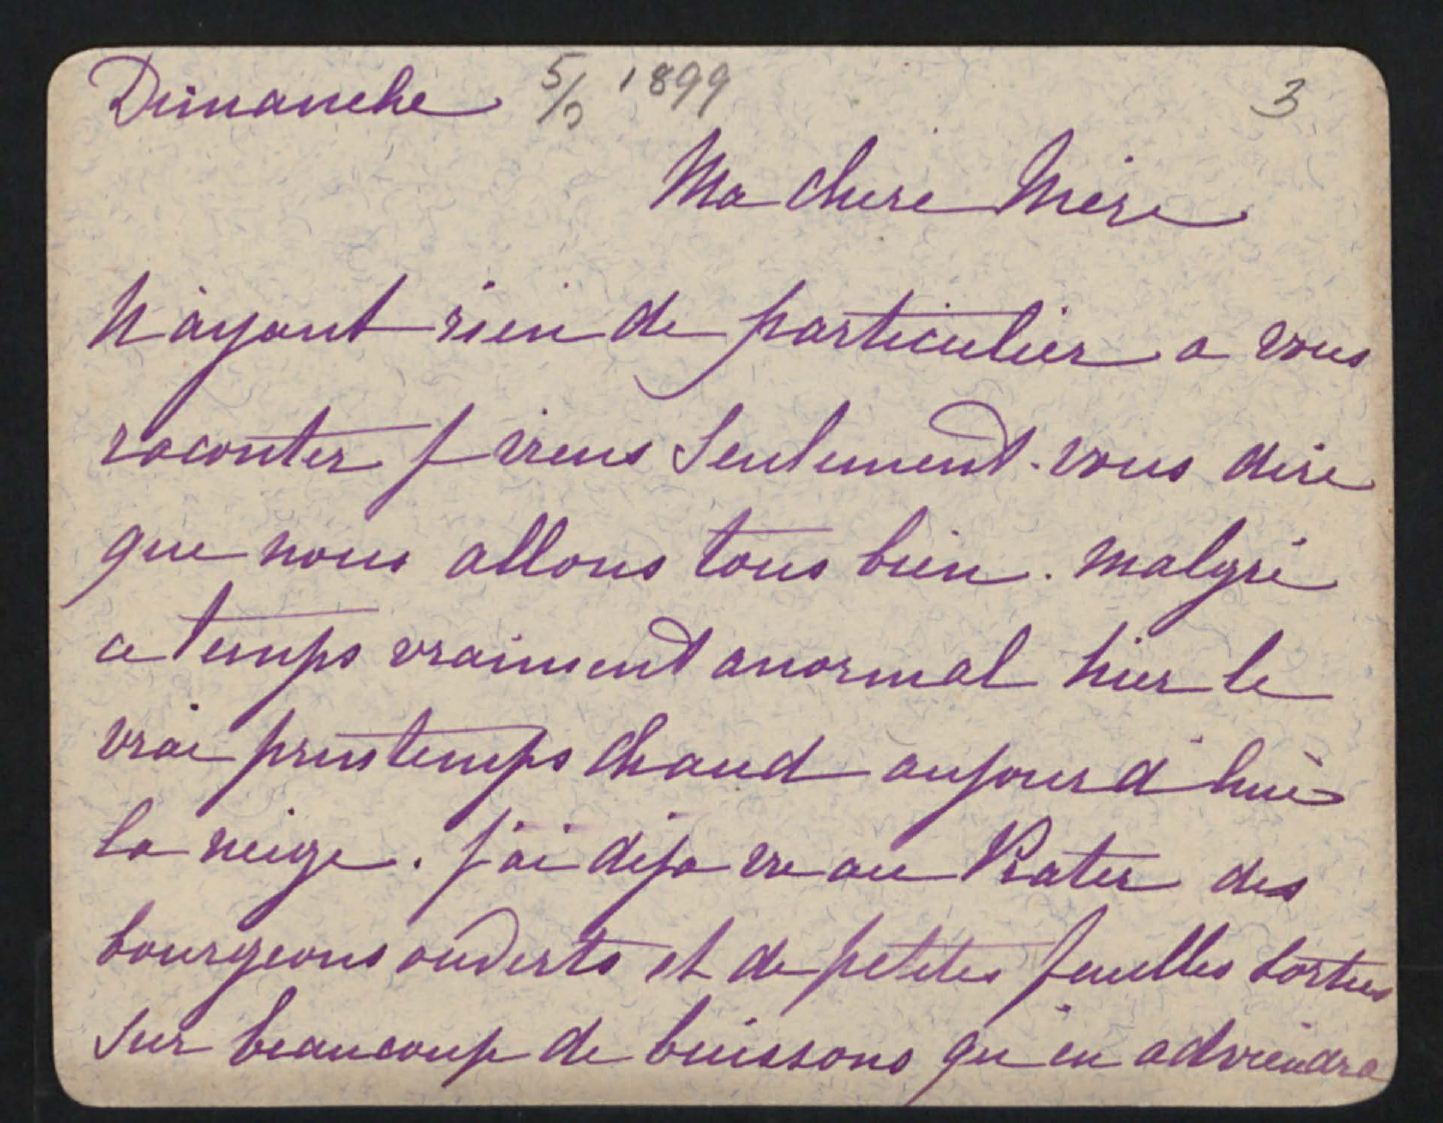 Dimanche 5/3 1899 3
Ma chere Mère
N'ayant rien de particulier a vous
raconter j viens seulement vous dire
que nous allons tous bien. malgré
ce temps vraiment anormal hier le
vrai printemps chaud aujourd'hui
la neige. j'ai déja vu au Prater des
bourgeons ouverts et de petites feuilles sorties
sur beaucoup de buissons qu'en adviendra